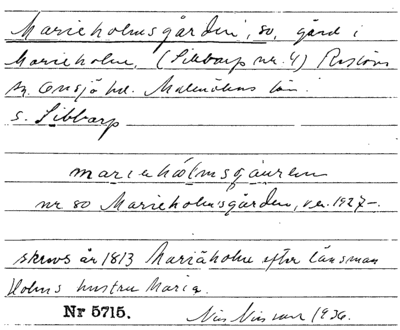 Marieholmsgården, 80, gård i
Marieholm, (Sibbarp nr. 4) Reslövs
sn. Onsjö hd. Malmöhus län.
s. Sibbarp
nr 80 Marieholmsgården, ver. 1927-.
skrevs år 1813 Mariäholm efter länsman
Holms hustru Maria.
Nr 5715.
1936.